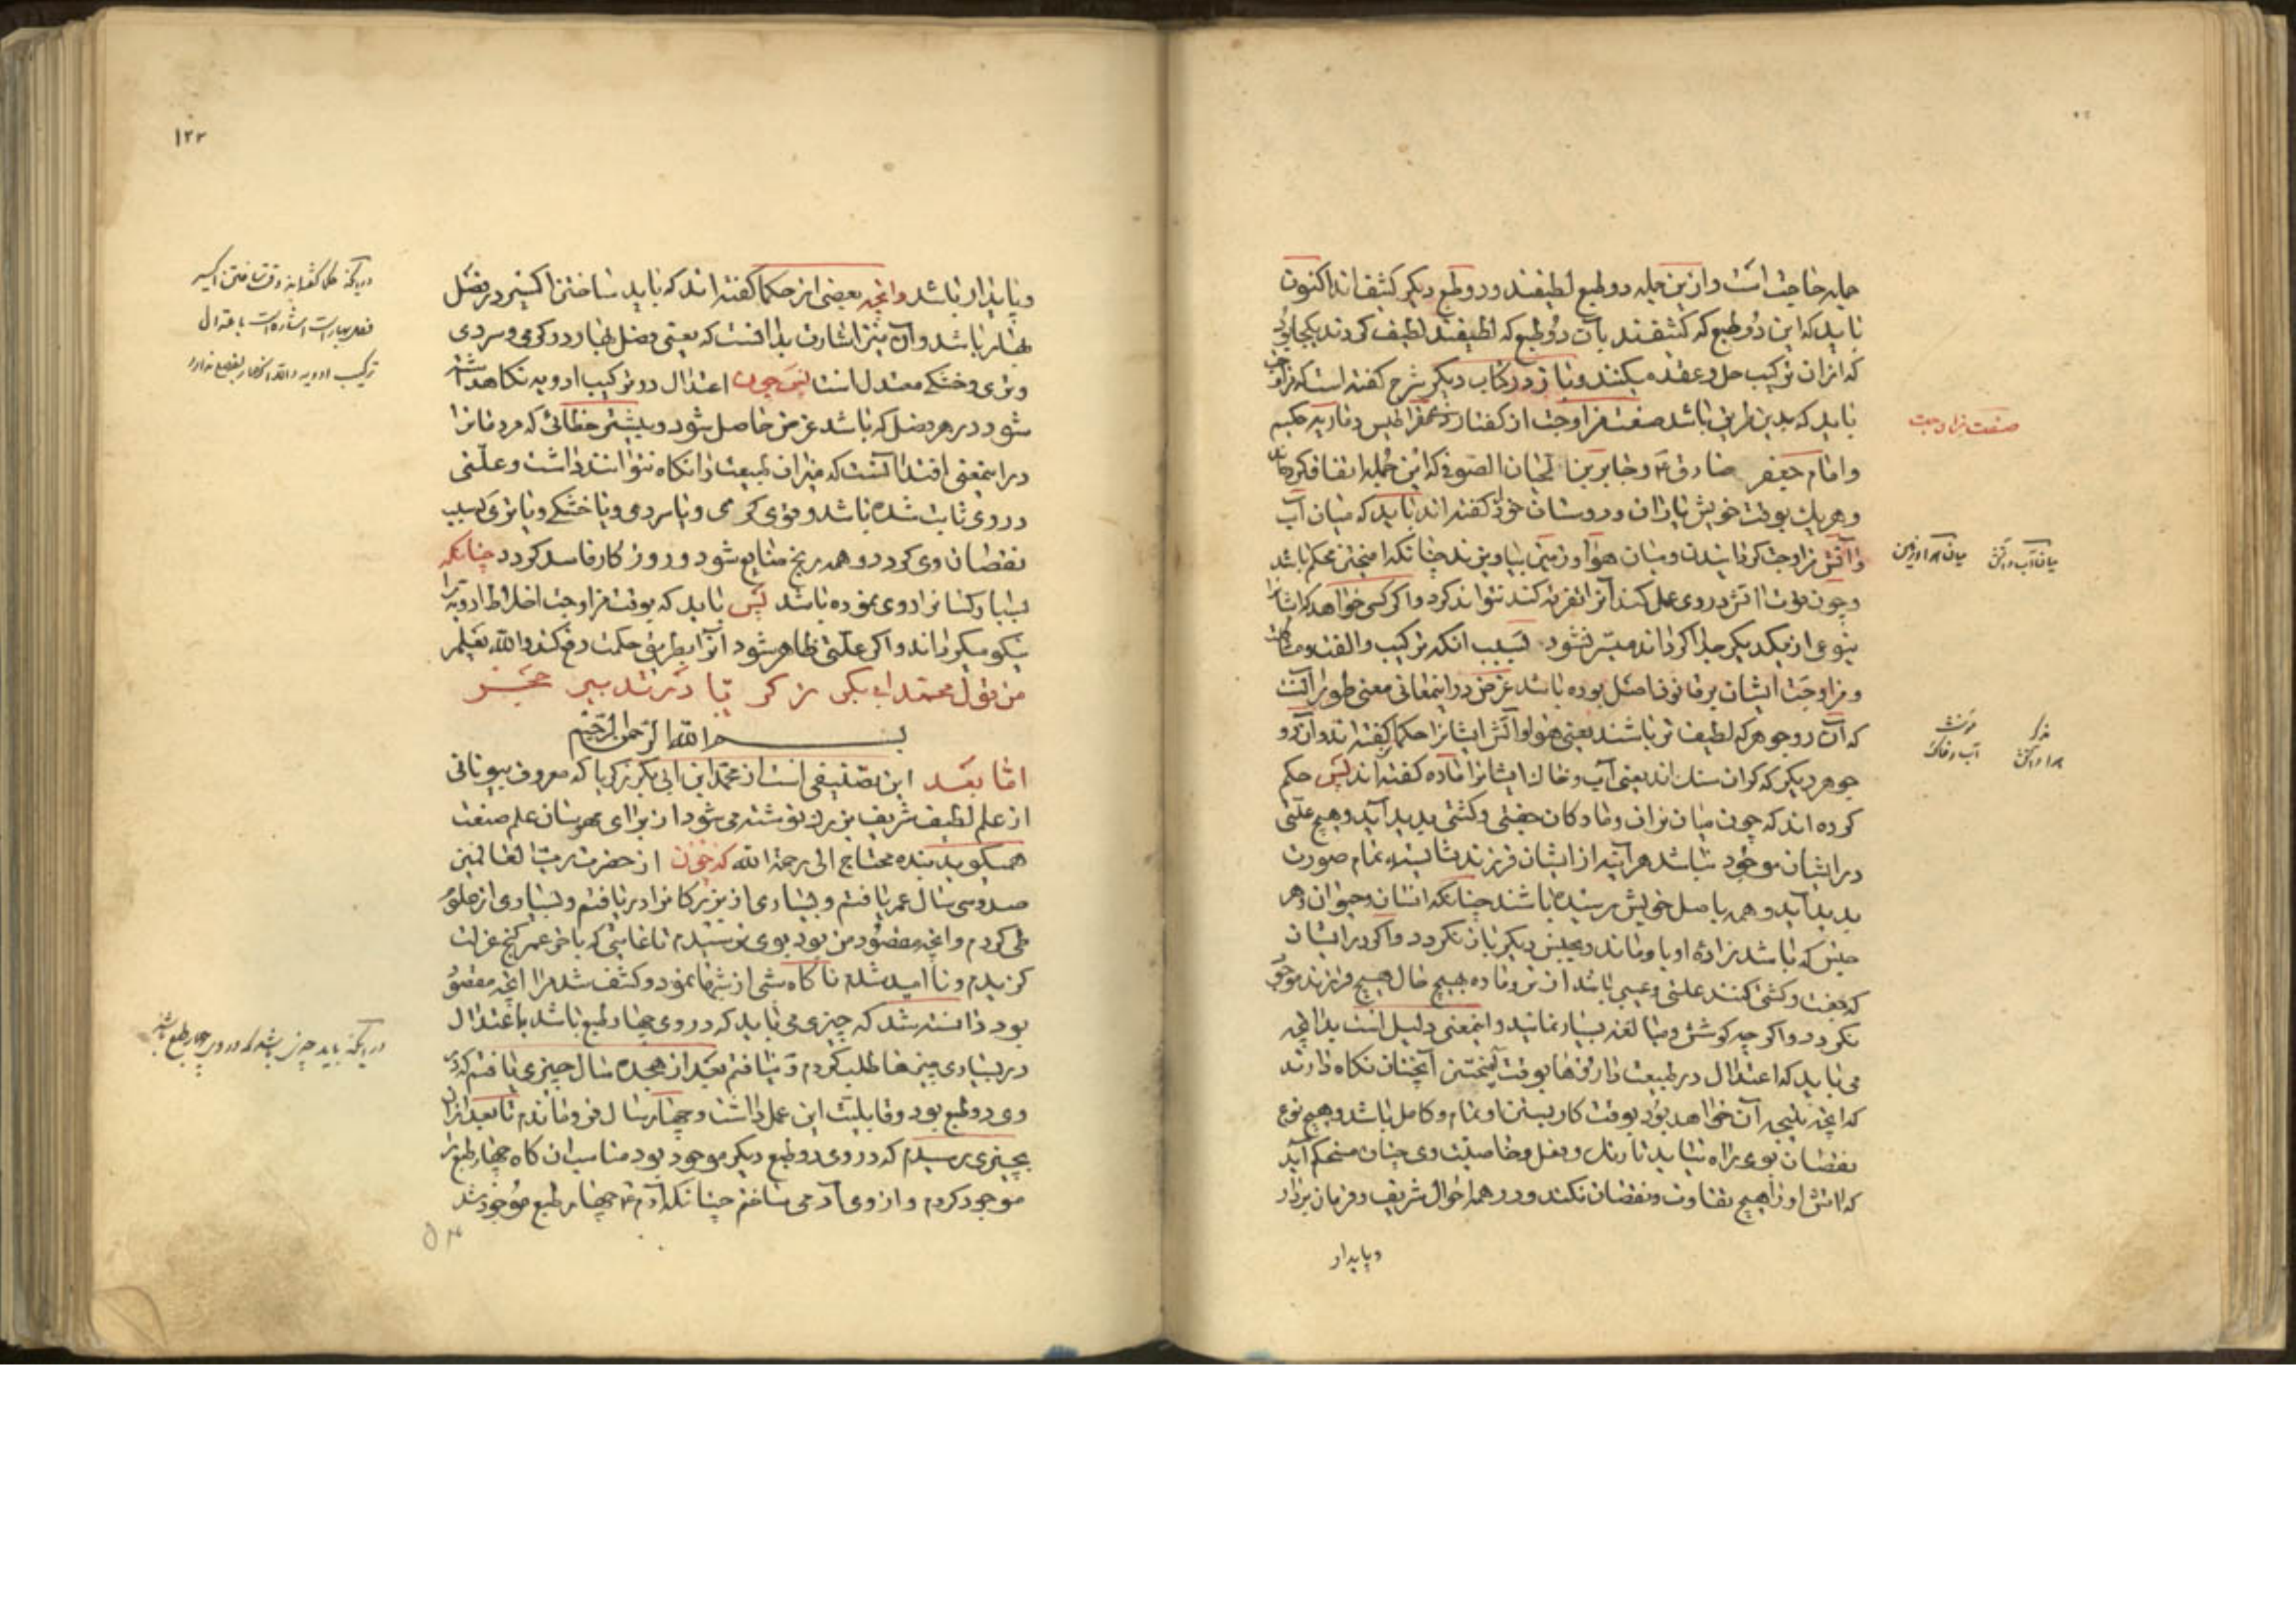 جمله حاجت است وازین جمله دو طبع لطیفند ودو طبع دیکر کثیف اند اکنون
باید که این دو طبع که کثیفند بآن دو طبع که لطیفند لطیف کردند یکجا بود
که ازان ترکیب حل وعقد میکنند وباز در کتاب دیکر شرح کفته است که مزاوجت
باید که بدین طریق باشد صفت مزاوجت از کفتار ذیمقراطیس وماریه حکیم
وامام جعفر صادق ع وجابر بن حیان الصوفی که این جمله اتفاق کرده اند
وهریك بوقت خویش یاران ودوستان خود را کفته اند باید که میان آب
وآتش مزاوجت کردانیدن ومیان هوا وزمین بیاویزند چنانکه امیختن محکم باشد
وچون قوت آتش در وی عمل کند آنرا تفرقه کند نتواند کرد واکر کسی خواهد که ایشانرا
بنوعی از یکدیکر جدا کرداند میسر نشود بسبب انکه ترکیب والفت
ومزاوجت ایشان بر قانون اصل بوده باشد غرض در اینمعانی معنی طویل آنست
که آن دو جوهر که لطیف تر باشند یعنی هوا وآتش ایشانرا حکما نر کفته اند وان دو
جوهر دیکر که کران سنك اند یعنی آب وخاك ایشانرا ماده کفته اند پس حکم
کرده اند که چون میان نران ومادکان جفتی وکشنی پدید آید وهیچ علتی
در ایشان موجود نباشد هر آینه از ایشان فرزند شایسته تمام صورت
پدید آید وهمه باصل خویش رسیده باشند چنانکه انسان وحیوان وهر
جنس که باشد زاده او باو ماند وبجنس دیکر باز نکردد واکر در ایشان
که جفت وکشن کنند علتی وعیبی باشد از نر وماده هیچ حال هیچ فرزند موجود
نکردد واکر چه کوشش ومبالغه بسیار نمایند واینمعنی دلیل است بدانچه
می باید که اعتدال در طبیعت داروها بوقت آمیختن آنچنان نکاه دارند
که انچه نتیجه آن خواهد بود بوقت کار بستن او تمام وکامل باشد وهیچ نوع
نقصان بوی راه نیابد تا رنك وفعل وخاصیت وی چنان مستحکم آید
که آتش او را هیچ تفاوت ونقصان نکند ودر همه احوال شریف وفرمان بردار
وپایدار
صفت مزاوجت
میان آب وآتش
میان هوا وزمین
مذکر
هوا وآتش
مؤنث
آب وخاك
۱۲۳
وپایدار باشد وانچه بعضی از حکما کفته اند که باید ساختن اکسیر در فصل
بهار باشد وآن نیز اشارت بدانست که یعنی فصل بهار در کرمی وسردی
وتری وخشکی معتدل است پس چون اعتدال در ترکیب ادویه نکاه داشته
شود در هر فصل که باشد غرض حاصل شود وبیشتر خطائی که مردمانرا
در اینمعنی افتد آنست که میزان طبیعت را نکاه نتوانند داشت وعلتی
در وی ثابت شده باشد وقوی کرمی ویا سردی ویا خشکی ویا تری بسبب
نقصان وی کردد وهمه رنج ضایع شود وروزکار فاسد کردد چنانکه
بسیار کسانرا روی نموده باشد پس باید که بوقت مزاوجت اخلاط ادویه را
نیکو میکرداند واکر علتی ظاهر شود آنرا بطریق حکمت دفع کند والله یعلم
من قول محمد ابی بکر زکریا در تدبیر حجر
بسم الله الرحمن الرحیم
اما بعد این تصنیفی است از محمد ابن ابی بکر زکریا که معروف بیونانی
از علم لطیف شریف بزرك نوشته می شود از برای علم صنعت
همیکوید بنده محتاج الی رحمة الله که چون از حضرت رب العالمین
صد وسی سال عمر یافتم وبسیاری از بزرکانرا دریافتم وبسیاری از علوم
طی کردم وانچه مقصود من بود بوی نرسیدم تا غایتی که باخر عمر کنج عزلت
کزیدم ونا امید شدم ناکاه شبی از شبها نمود وکشف شد مرا انچه مقصود
بود دانسته شد که چیزی می باید که در وی چهار طبع باشد باعتدال
در بسیاری چیزها طلب کردم ونیافتم بعد از هجده سال چیزی یافتم که در
وی دو طبع بود وقابلیت این عمل داشت وچهار سال فرو ماندم تا بعد ازان
بچیزی رسیدم که در وی دو طبع دیکر موجود بود مناسب ان کاه چهار طبع را
موجود کردم واز وی آدمی ساختم چنانکه آدم ع چهار طبع موجود شد
در آنکه حکما کفته اند وقت ساختن اکسیر
فصل بهار است اشاره است باعتدال
ترکیب ادویه والا انحصار بفصل ندارد
در آنکه باید چیزی باشد که در وی چهار طبع باشد